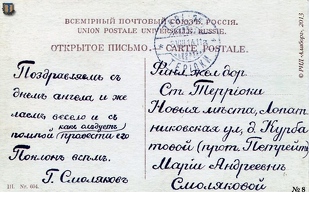 ВСЕМІРНЫЙ ПОЧТОВЫЙ СОЮЗЪ. РОССІЯ.
UNION POSTALE UNIVERSELLE. RUSSIE.
ОТКРЫТОЕ ПИСЬМО. — CARTE POSTALE.
Поздравляемъ съ
днемъ ангела и же
лаемъ весело и съ
какъ слѣдуетъ
помпой провести его
Поклонъ всѣмъ.
Г. Смоляковъ
Финл. жел дор
Ст Терріоки
Новыя мѣста, Лопат
никовская ул, д Курба
товой (прот Петрейт)
Маріи Андреевнѣ
Смоляковой
Ill. Nr. 604.
№ 8